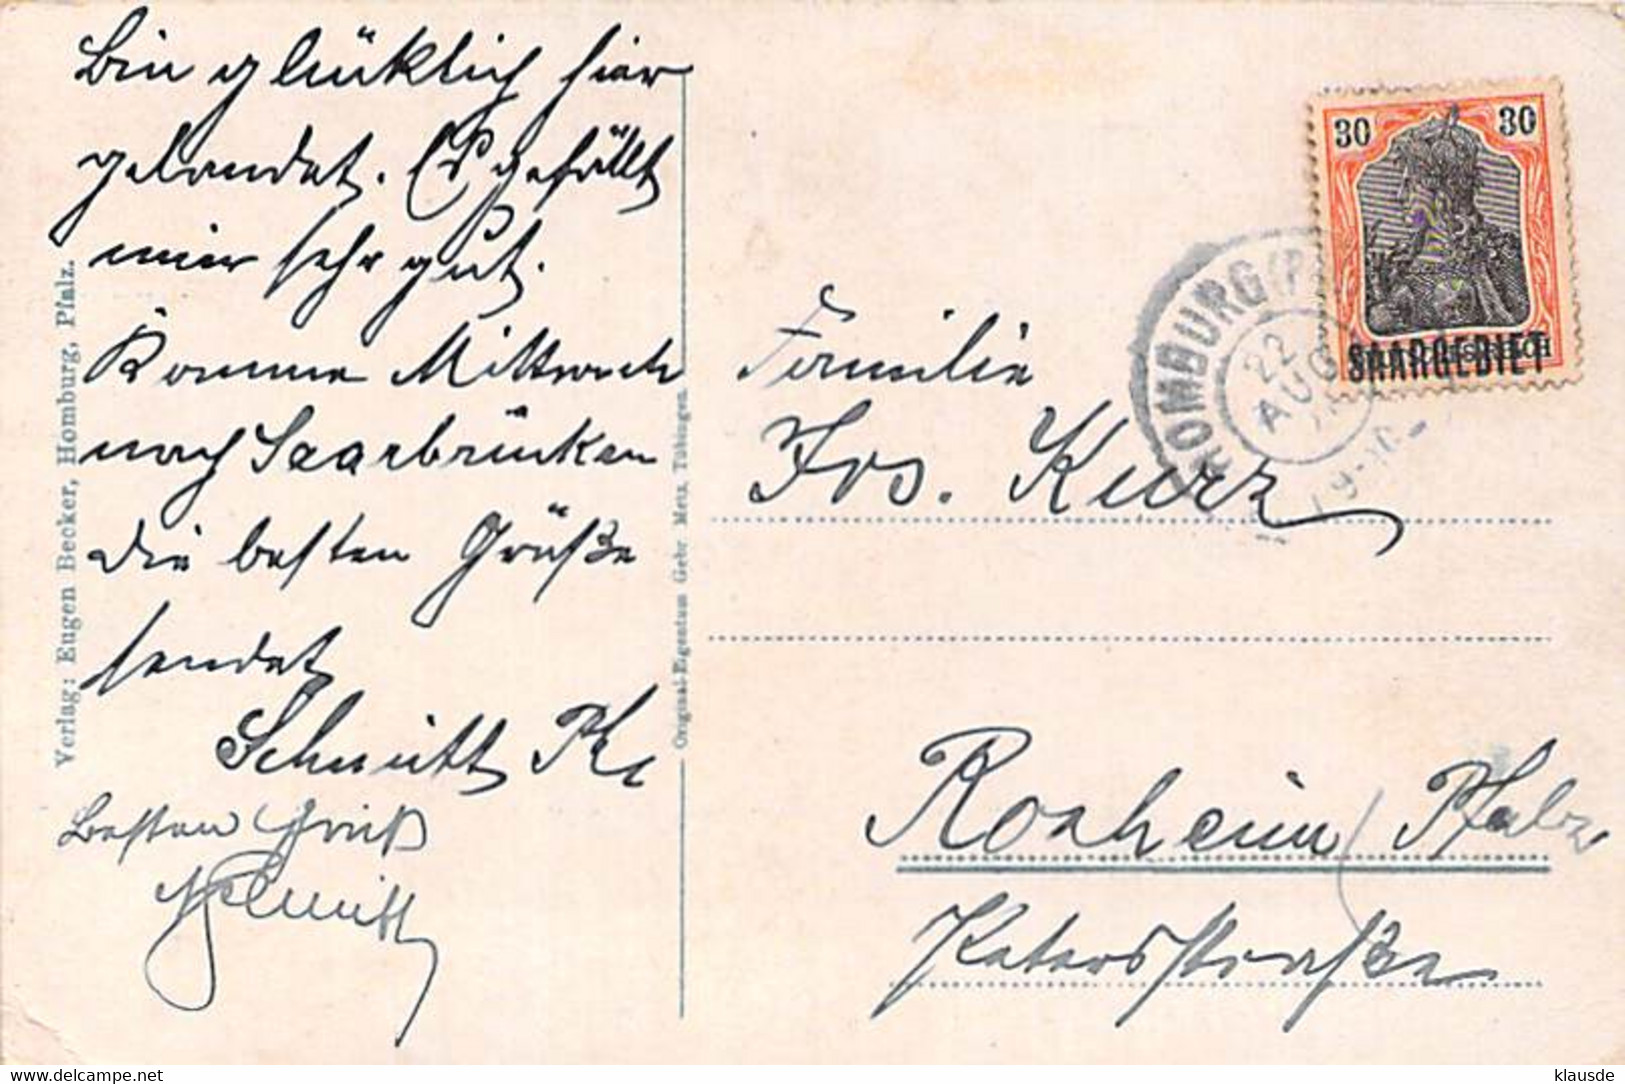 Bin glücklich hier
gelandet. Es gefällt
mir sehr gut.
Komme Mittwoch
nach Saarbrücken
die besten Grüße
sendet
Schmitt
Besten Gruß
Schmitt
Verlag: Eugen Becker, Homburg, Pfalz.
Original-Eigentum Gebr Metz, Tübingen.
30 30
SAARGEBIET
HOMBURG (P
22
AUG
Familie
Jos. Kurz
Roxheim / Pfalz
Petersstraße
klausde